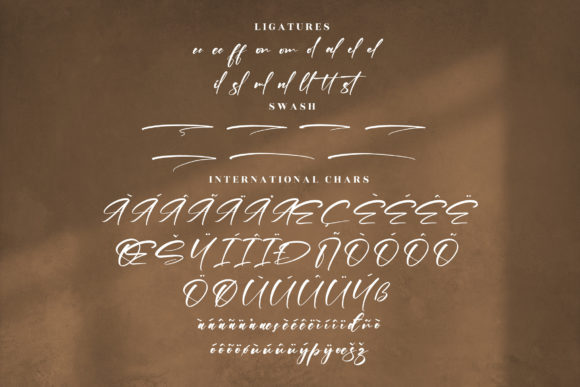 LIGATURES
ee ee ff on om d al el el
il sl rl nl lt tt st
SWASH
INTERNATIONAL CHARS
ÀÁÂÃÄÅÆÇÈÉÊË
ŒŠŸÍÎÏÐÑÒÓÔÕ
ÖØÙÚÛÜÝß
àáâãäåæçèéêëìíîïđñò
óôõöøùúûüýþÿœšž